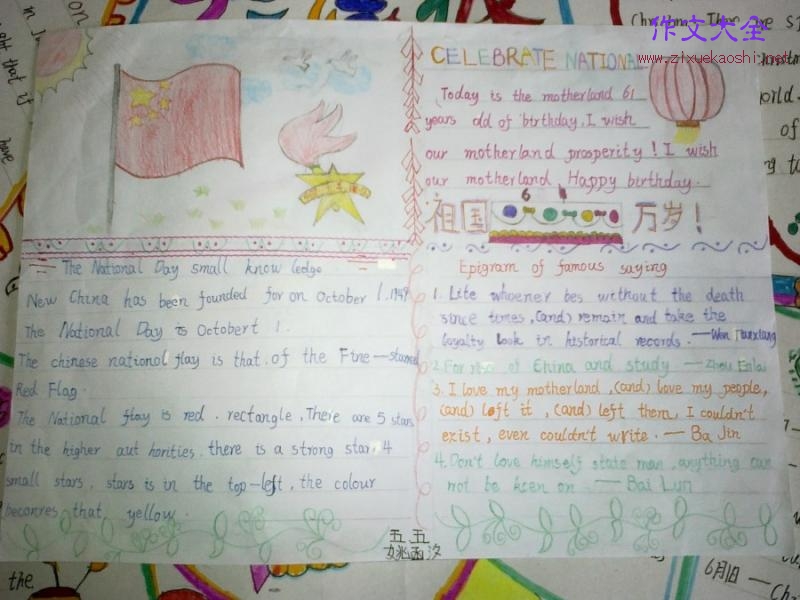 作文大全
www.zixuekaoshi.net
CELEBRATE NATIONAL
Today is the motherland 61
years old of birthday, I wish
our motherland prosperity! I wish
our motherland, Happy birthday.
祖国 万岁!
6 1
The National Day small know ledge
New China has been founded for on October 1.1949
The National Day is Octobert 1.
The chinese national flay is that of the Fine-starred
Red Flag.
The National flay is red. rectangle, There are 5 stars
in the higher aut horities, there is a strong star. 4
small stars, stars is in the top-left, the colour
becomes that yellow.
Epigram of famous saying
1. Life whoener bes without the death
since times, (and) remain and take the
loyalty look in historical records. —Wen Tianxiang
2. For of China and study —Zhou Enlai
3. I love my motherland, (and) love my people,
(and) left it, (and) left them, I couldn't
exist, even couldn't write. — Ba Jin
4. Don't love himself state man, anything can
not be keen on — Bai Lun
五五
姚函汐
the
have
of
6月1日